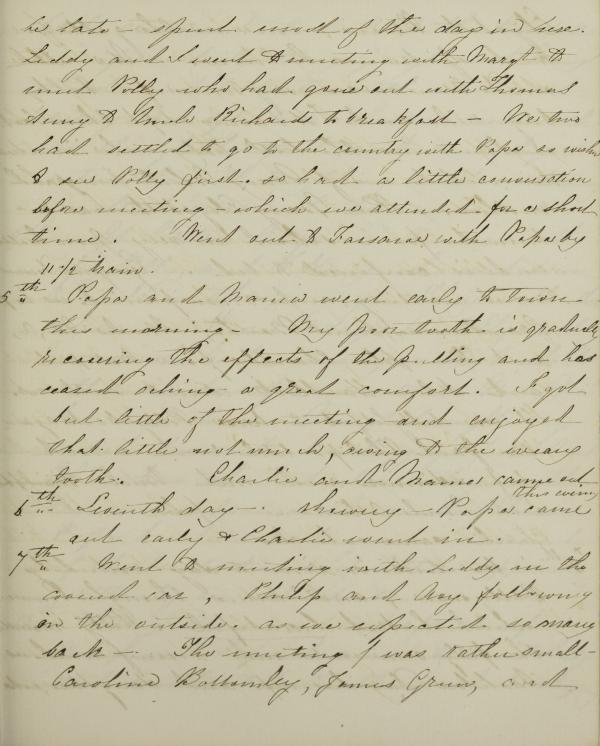 be late - spent most of the day in here.
Liddy and I went to meeting with Margt to
meet Polly who had gone out with Thomas
to Uncle Richards to breakfast - We two
had settled to go to the country with Papa so wished
to see Polly first. so had a little conversation
before meeting - which we attended for a short
time. Went out to with Papa by
11 1/2 train.
5th " Papa and Mama went early to town
this morning - My poor tooth is gradually
recovering the effects of the pulling and has
ceased aching - a great comfort. I got
but little of the meeting and enjoyed
that little not much, owing to the weary
tooth. Charlie and Mama came out
this evening
6th " Seventh day - showery - Papa came
out early & Charlie went in.
7th " Went to meeting with Liddy in the
covered car, Philip and following
on the outside. as we expected so many
back - The meeting was rather small -
Caroline Bottomley, James Green, and